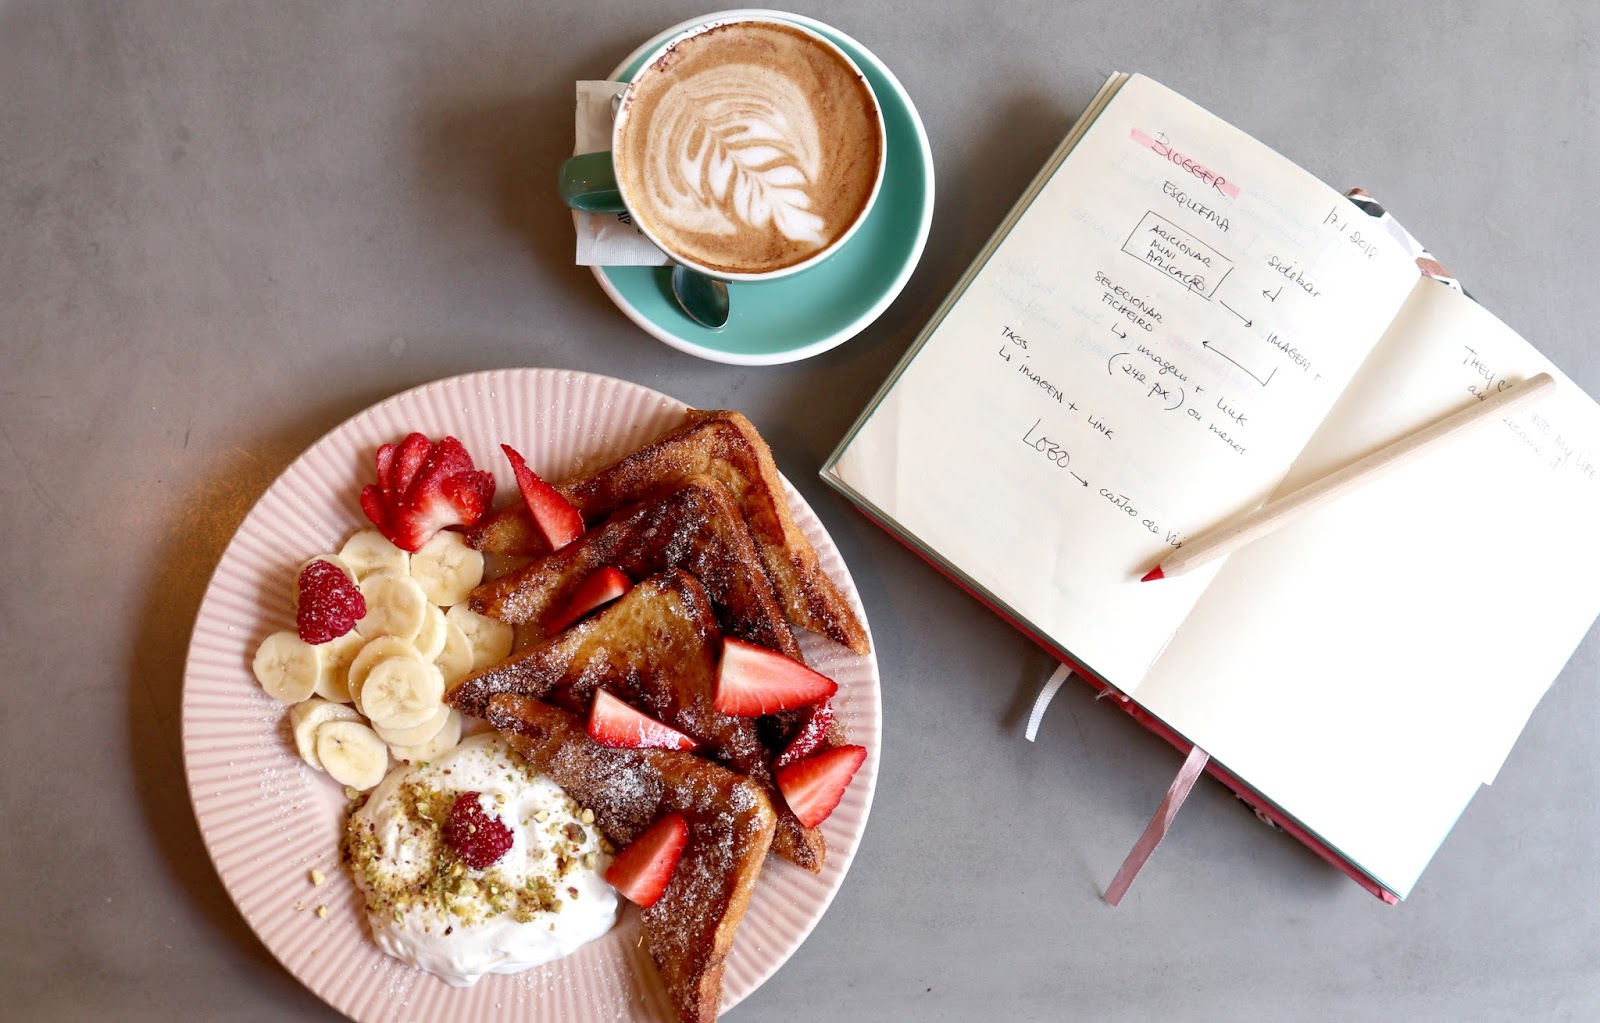 BLOGGER
17.1.2018
ESQUEMA
ADICIONAR
MINI
APLICAÇÃO
sidebar
SELECIONAR
FICHEIRO
IMAGEM +
↳ imagens + link
(242 px) ou menos
TAGS
↳ IMAGEM + LINK
LOGO → cartão de vis
THEY
INTO MY LIFE